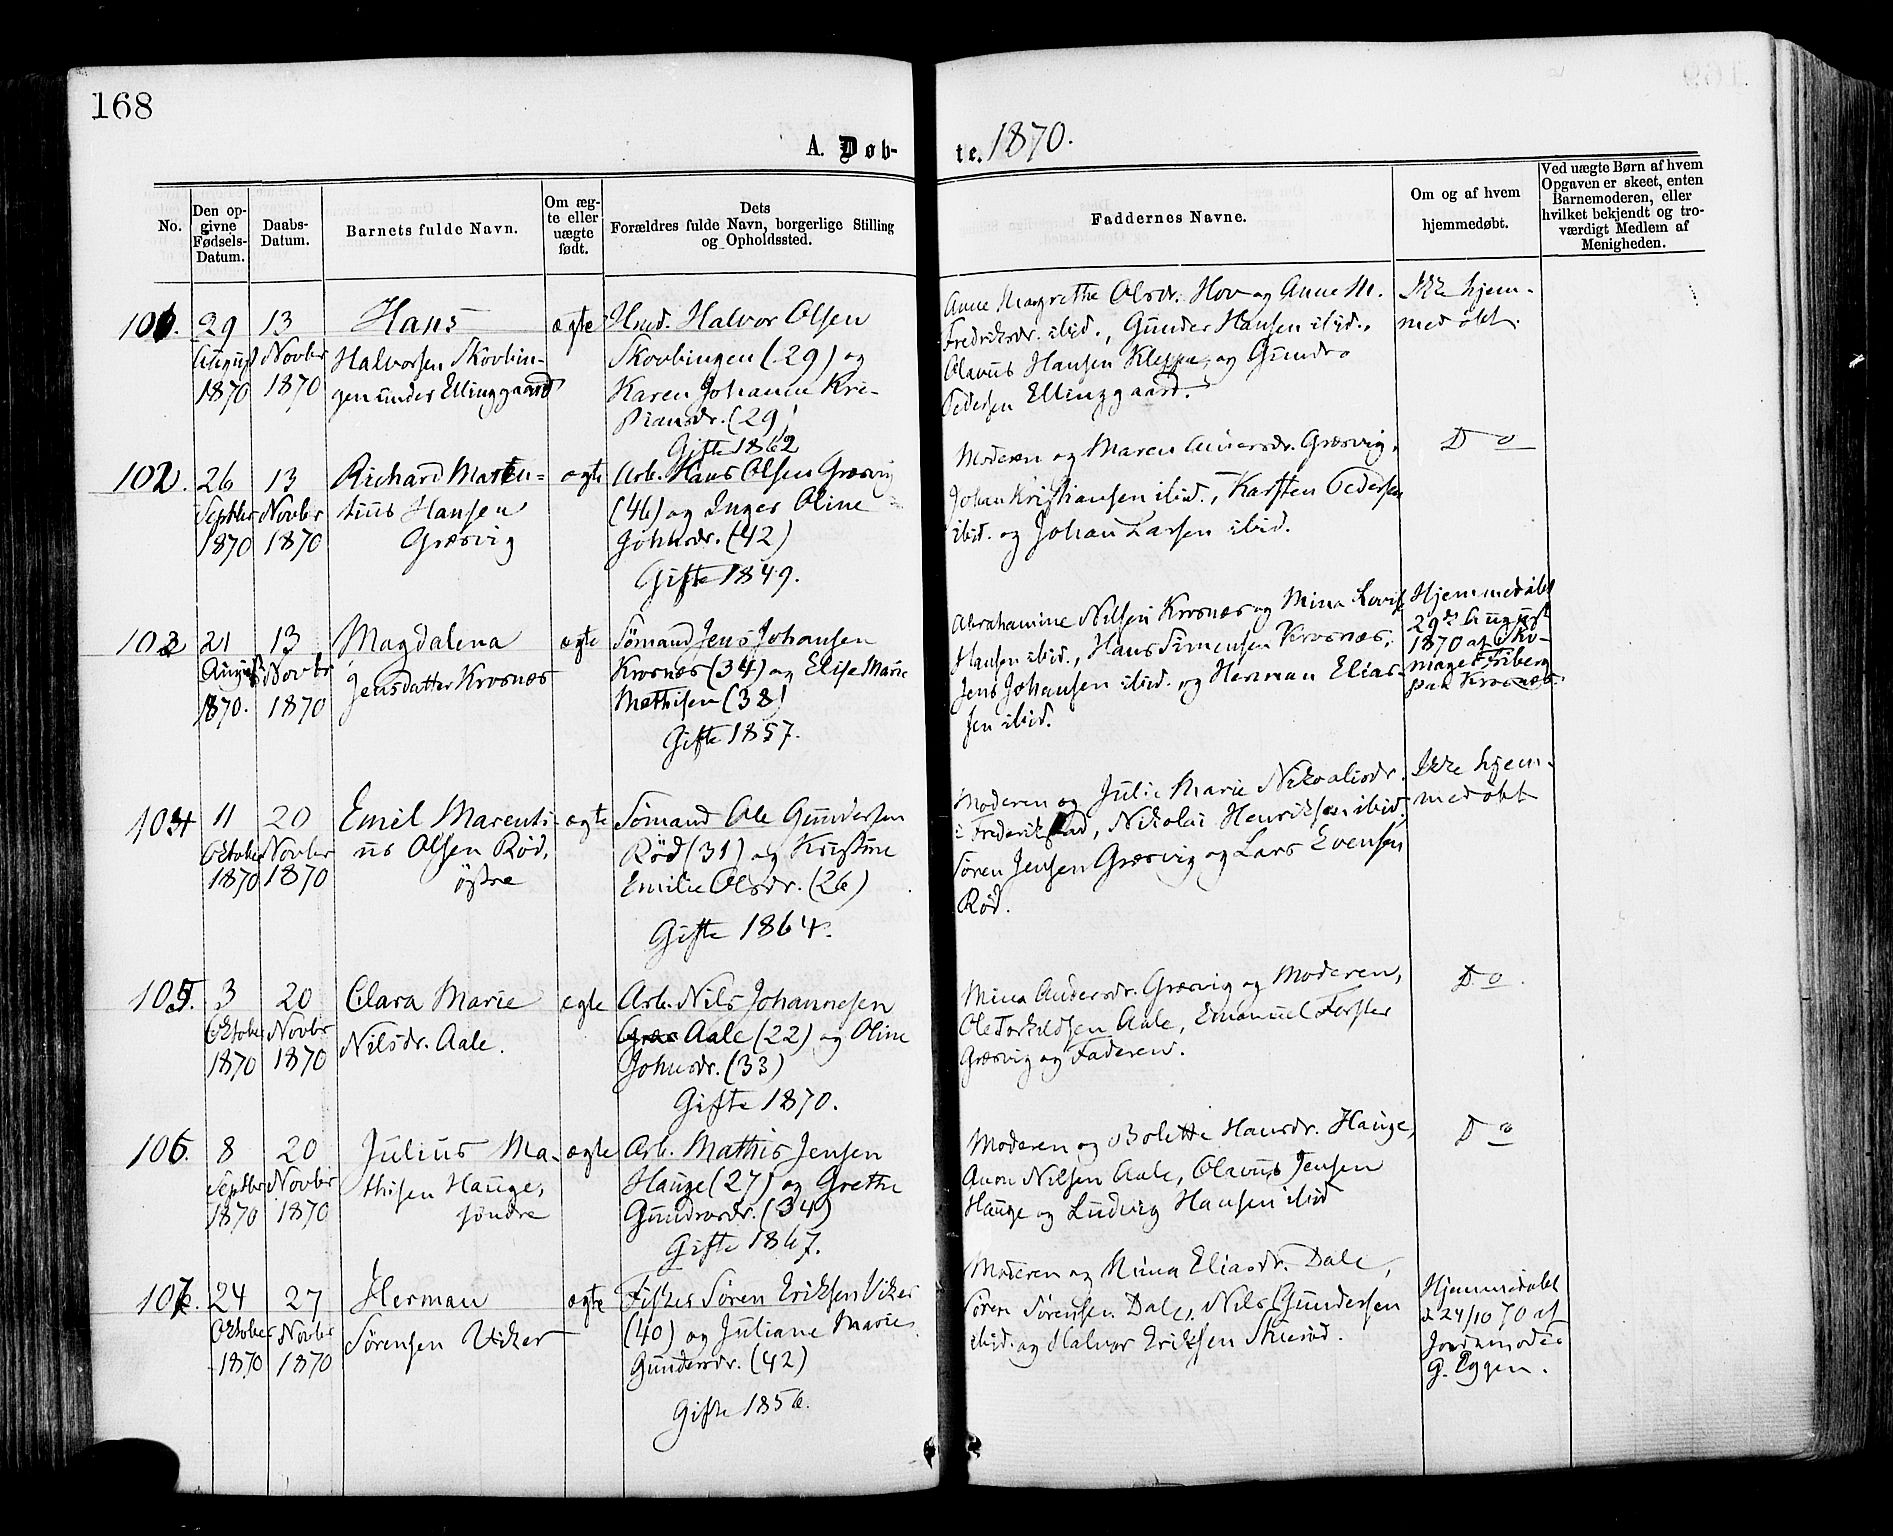 168
A. Døb-
te. 1870.
No.
Den op-
givne
Fødsels-
Datum.
Daabs-
Datum.
Barnets fulde Navn.
Om æg-
te eller
uægte
født.
Dets
Forældres fulde Navn, borgerlige Stilling
og Opholdssted.
Faddernes Navne.
Om og af hvem
hjemmedøbt.
Ved uægte Børn af hvem
Opgaven er skeet, enten
Barnemoderen, eller
hvilket bekjendt og tro-
værdigt Medlem af
Menigheden.
101.
29
August
1870
13
Novbr
1870
Hans
Halvorsen Skovbin-
gen under Ellinggaard
ægte
Hmd. Halvor Olsen
Skovbingen (29) og
Karen Johanne Kri-
stiansdr. (29)
Gifte 1862
Anne Margrethe Olsdr. Hov og Anne M.
Fredriksdr. ibid., Gunder Hansen ibid.,
Olavus Hansen Kleppe, og Gundro
Pedersen Ellinggaard.
Ikke hjem-
medøbt.
102.
26
Septbr
1870
13
Novbr
1870
Richard Marten-
tius Hansen
Græsvig
ægte
Arb. Hans Olsen Græsvig
(46) og Inger Oline
Johnsdr. (42)
Gifte 1849.
Moderen og Maren Andersdr. Græsvig,
Johan Kristiansen ibid., Karsten Pedersen
ibid. og Johan Larsen ibid.
Do
103
21
August
1870.
13
Novbr
1870
Magdalena
Jensdatter Krosnæs
ægte
Sömand Jens Johansen
Krosnæs (34) og Elise Marie
Mathisen (38)
Gifte 1857.
Abrahamine Nilsen Krosnæs og Mina Lovise
Hansen ibid., Hans Simensen Krosnæs,
Jens Johansen ibid. og Herman Elias-
sen ibid.
Hjemmedöbt
29de August
1870 af Sko-
mager Friberg
paa Krosnæs.
104
11
Oktober
1870
20
Novbr
1870
Emil Marenti-
us Olsen Röd,
östre
ægte
Sömand Ole Gundersen
Röd (31) og Kristine
Emilie Olsdr. (26)
Gifte 1864.
Moderen og Julie Marie Nikolaisdr.
i Frederikstad, Nikolai Henriksen ibid.
Sören Jensen Græsvig og Lars Evensen
Röd.
Ikke hjem-
medöbt
105.
3
Oktober
1870
20
Novbr
1870
Clara Marie
Nilsdr. Aale.
ægte
Arb. Nils Johannesen
Græs Aale (22) og Oline
Johnsdr. (33)
Gifte 1870.
Mina Andersdr. Græsvig og Moderen,
Ole Torkildsen Aale, Emanuel Forster
Græsvig og Faderen.
Do.
106.
8
Septbr
1870
20
Novbr
1870
Julius Ma-
thisen Hauge,
söndre
ægte
Arb. Mathis Jensen
Hauge (27) og Grethe
Gundrosdr. (34)
Gifte 1867.
Moderen og Bolette Hansdr. Hauge,
Anon Nilsen Aale, Olavus Jensen
Hauge og Ludvig Hansen ibid
Do
107.
24
Oktober
1870
27
Novbr
1870
Herman
Sörensen Viker
ægte
Fisker Sören Eriksen Viker
(40) og Juliane Marie
Gundersdr. (42)
Gifte 1856.
Moderen og Mina Eliasdr. Dale,
Sören Sörensen Dale, Nils Gundersen
ibid. og Halvor Eriksen
Hjemmedöbt
d 24/10 70 af
Jordemoder
G. Eggen.